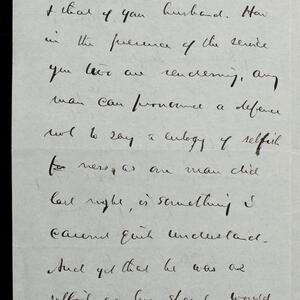 & that of your husband. How
in the presence of the service
you two are rendering, any
man can pronounce a defence
not to say a eulogy of selfish
ness, as one man did
last night, is something I
cannot quite understand.
And yet that he was as
selfish as he would